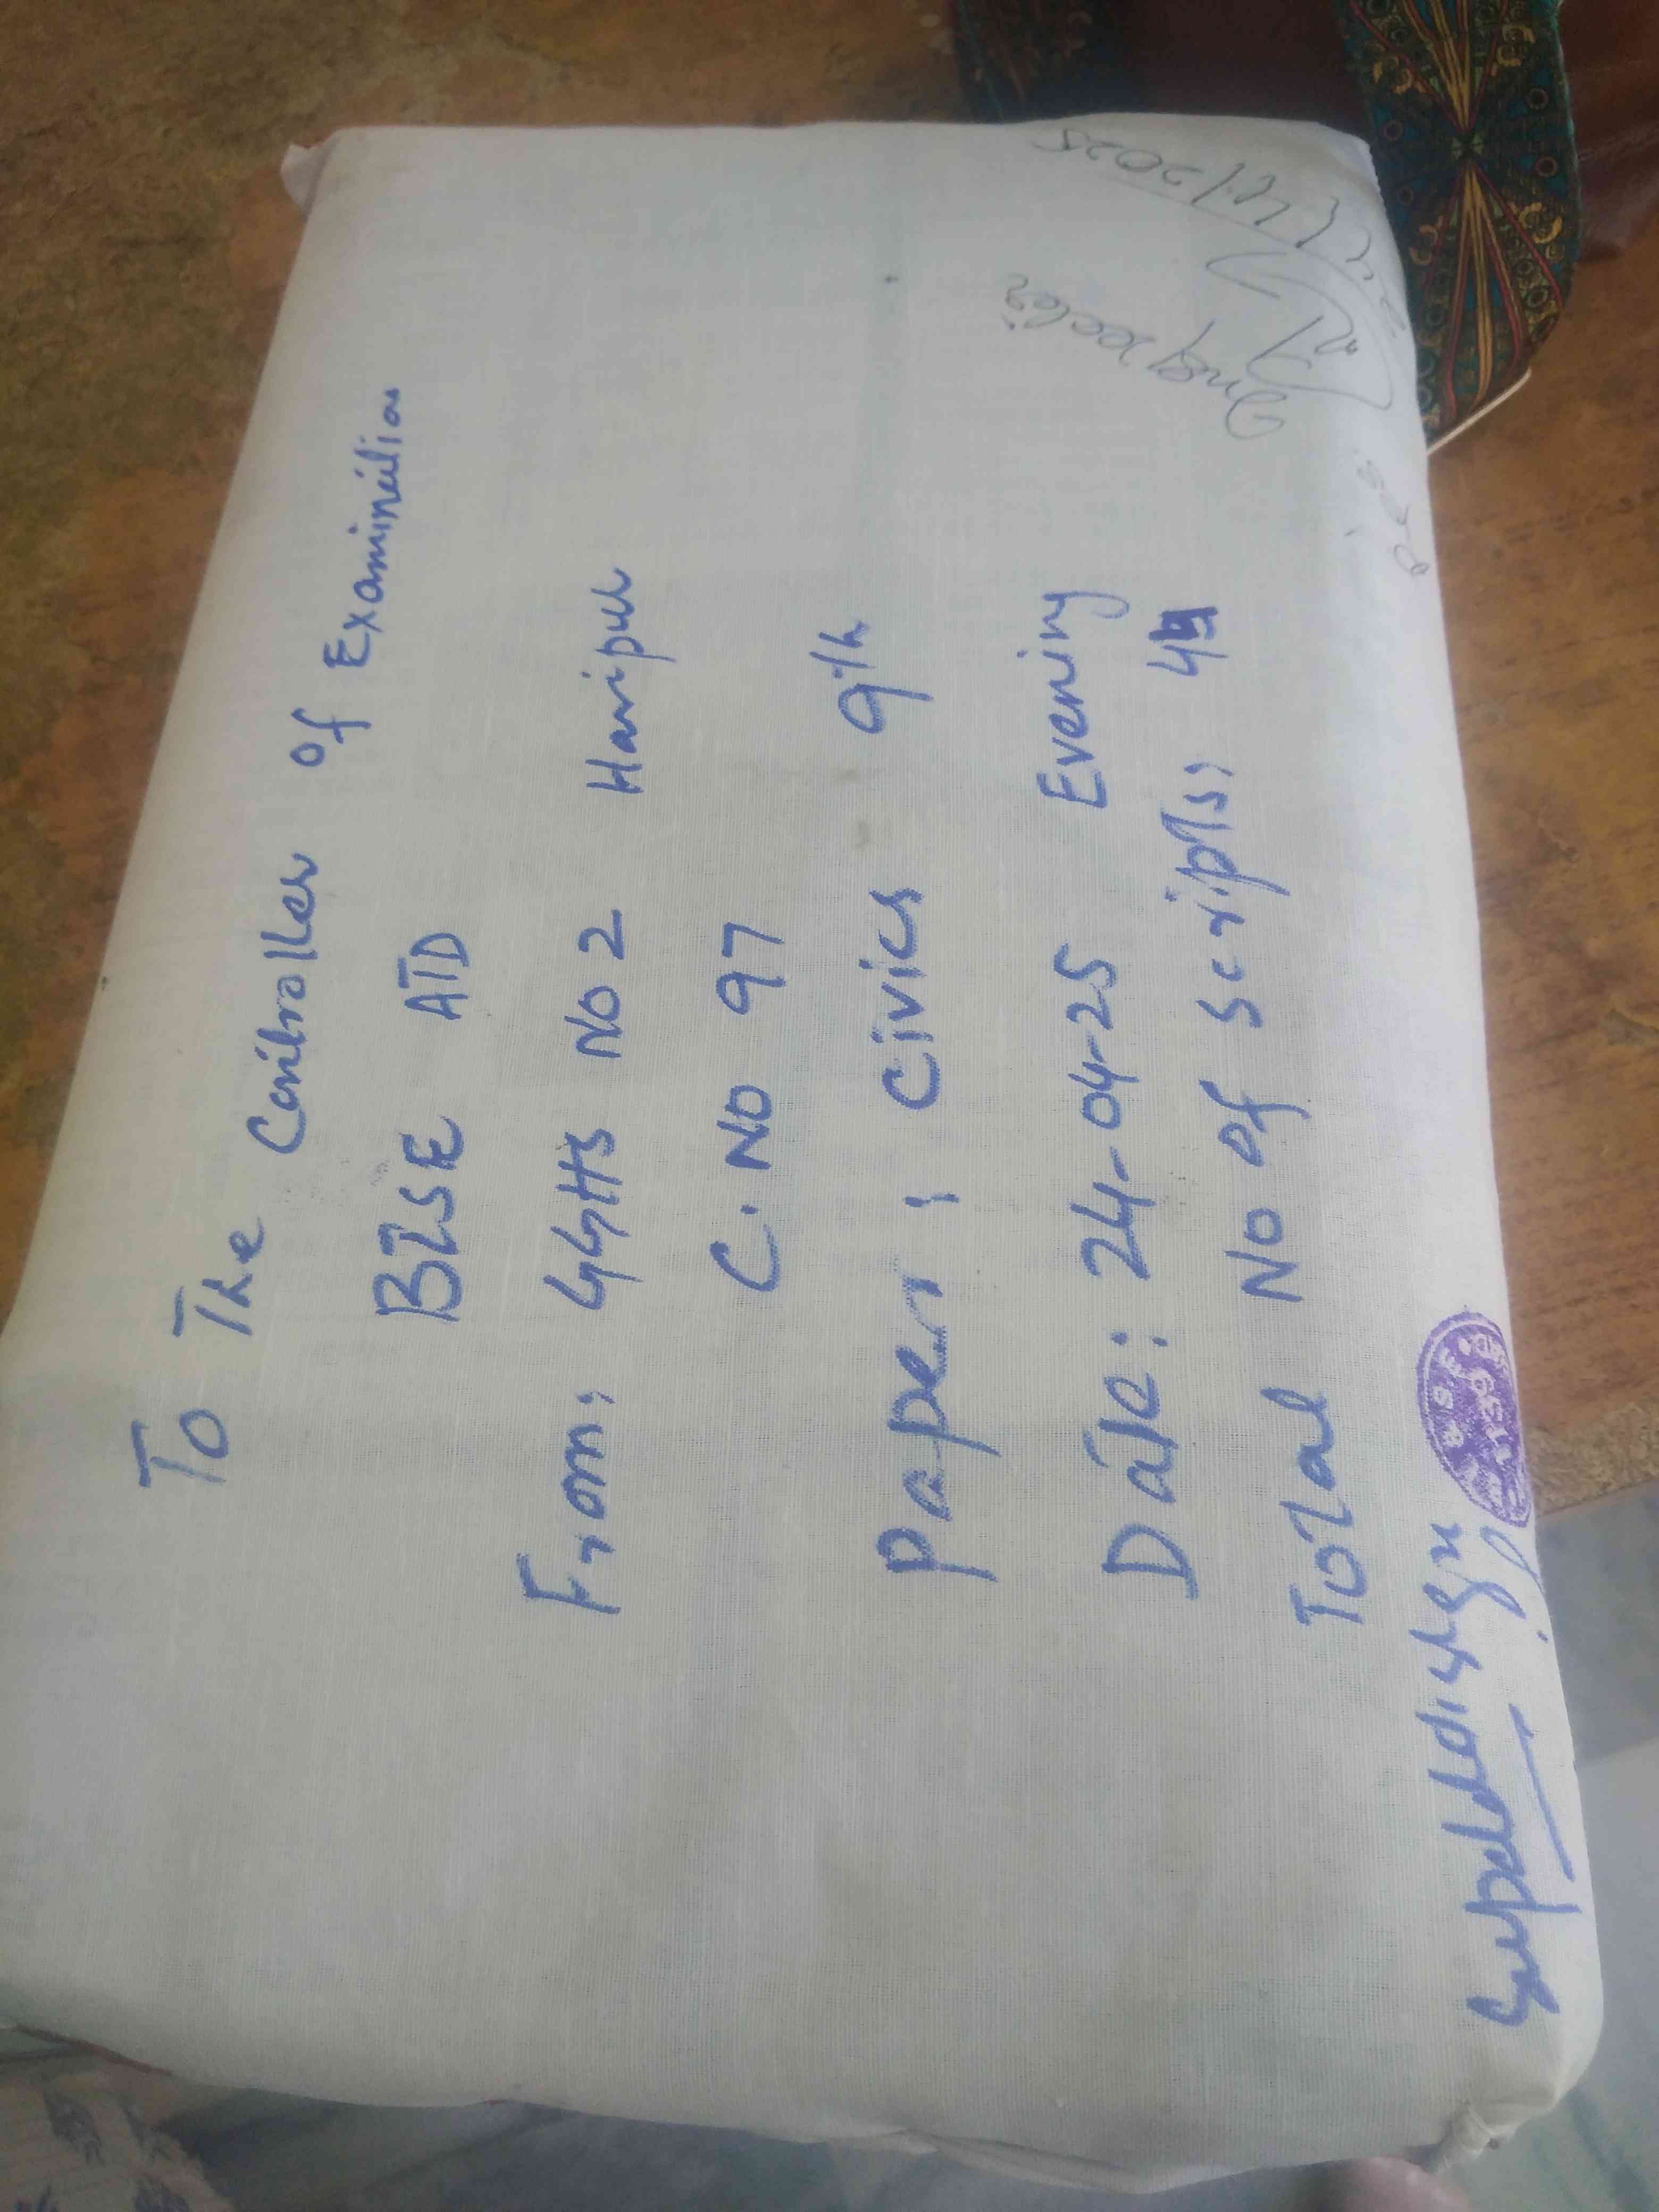 To The Controller of Examination
BISE ATD
From: GGHS No 2 Haripur
C. No 97
Paper: Civics 9th
Date: 24-04-25 Evening
Total No of Scripts:
Inspector